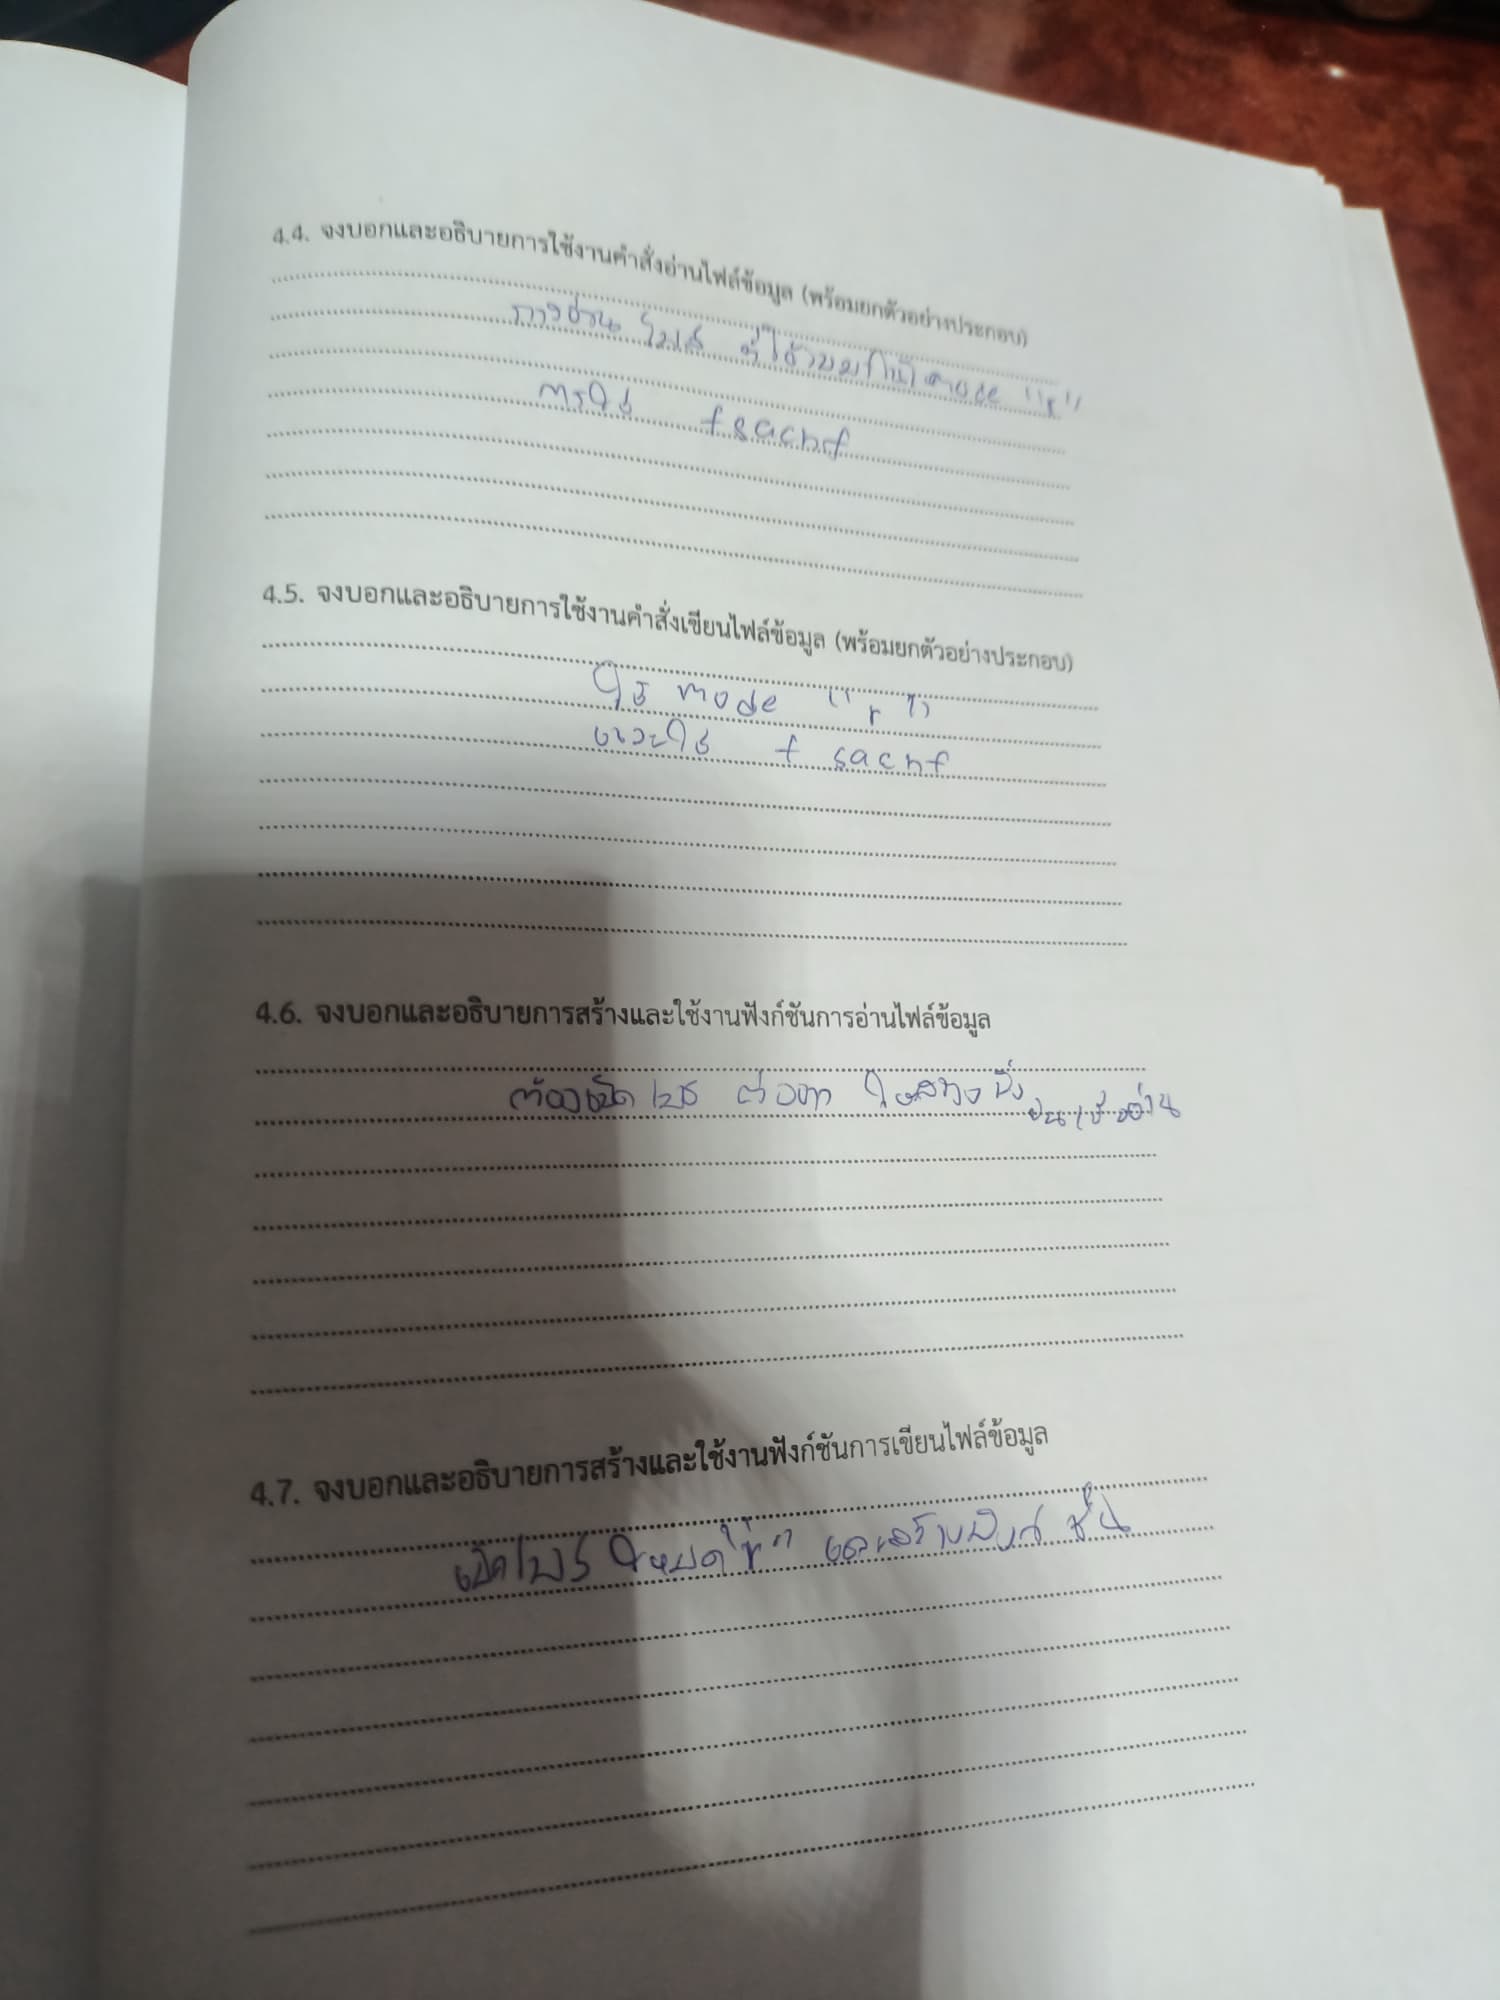 4.4. จงบอกและอธิบายการใช้งานคำสั่งอ่านไฟล์ข้อมูล (พร้อมยกตัวอย่างประกอบ)
การอ่านไฟล์ mode "r"
การใช้ fsacnf
4.5. จงบอกและอธิบายการใช้งานคำสั่งเขียนไฟล์ข้อมูล (พร้อมยกตัวอย่างประกอบ)
ใช้ mode "r"
และใช้ f sacnf
4.6. จงบอกและอธิบายการสร้างและใช้งานฟังก์ชันการอ่านไฟล์ข้อมูล
ต้องเปิดไฟล์
4.7. จงบอกและอธิบายการสร้างและใช้งานฟังก์ชันการเขียนไฟล์ข้อมูล
เปิดไฟล์ "r" และสร้างฟังก์ชั่น